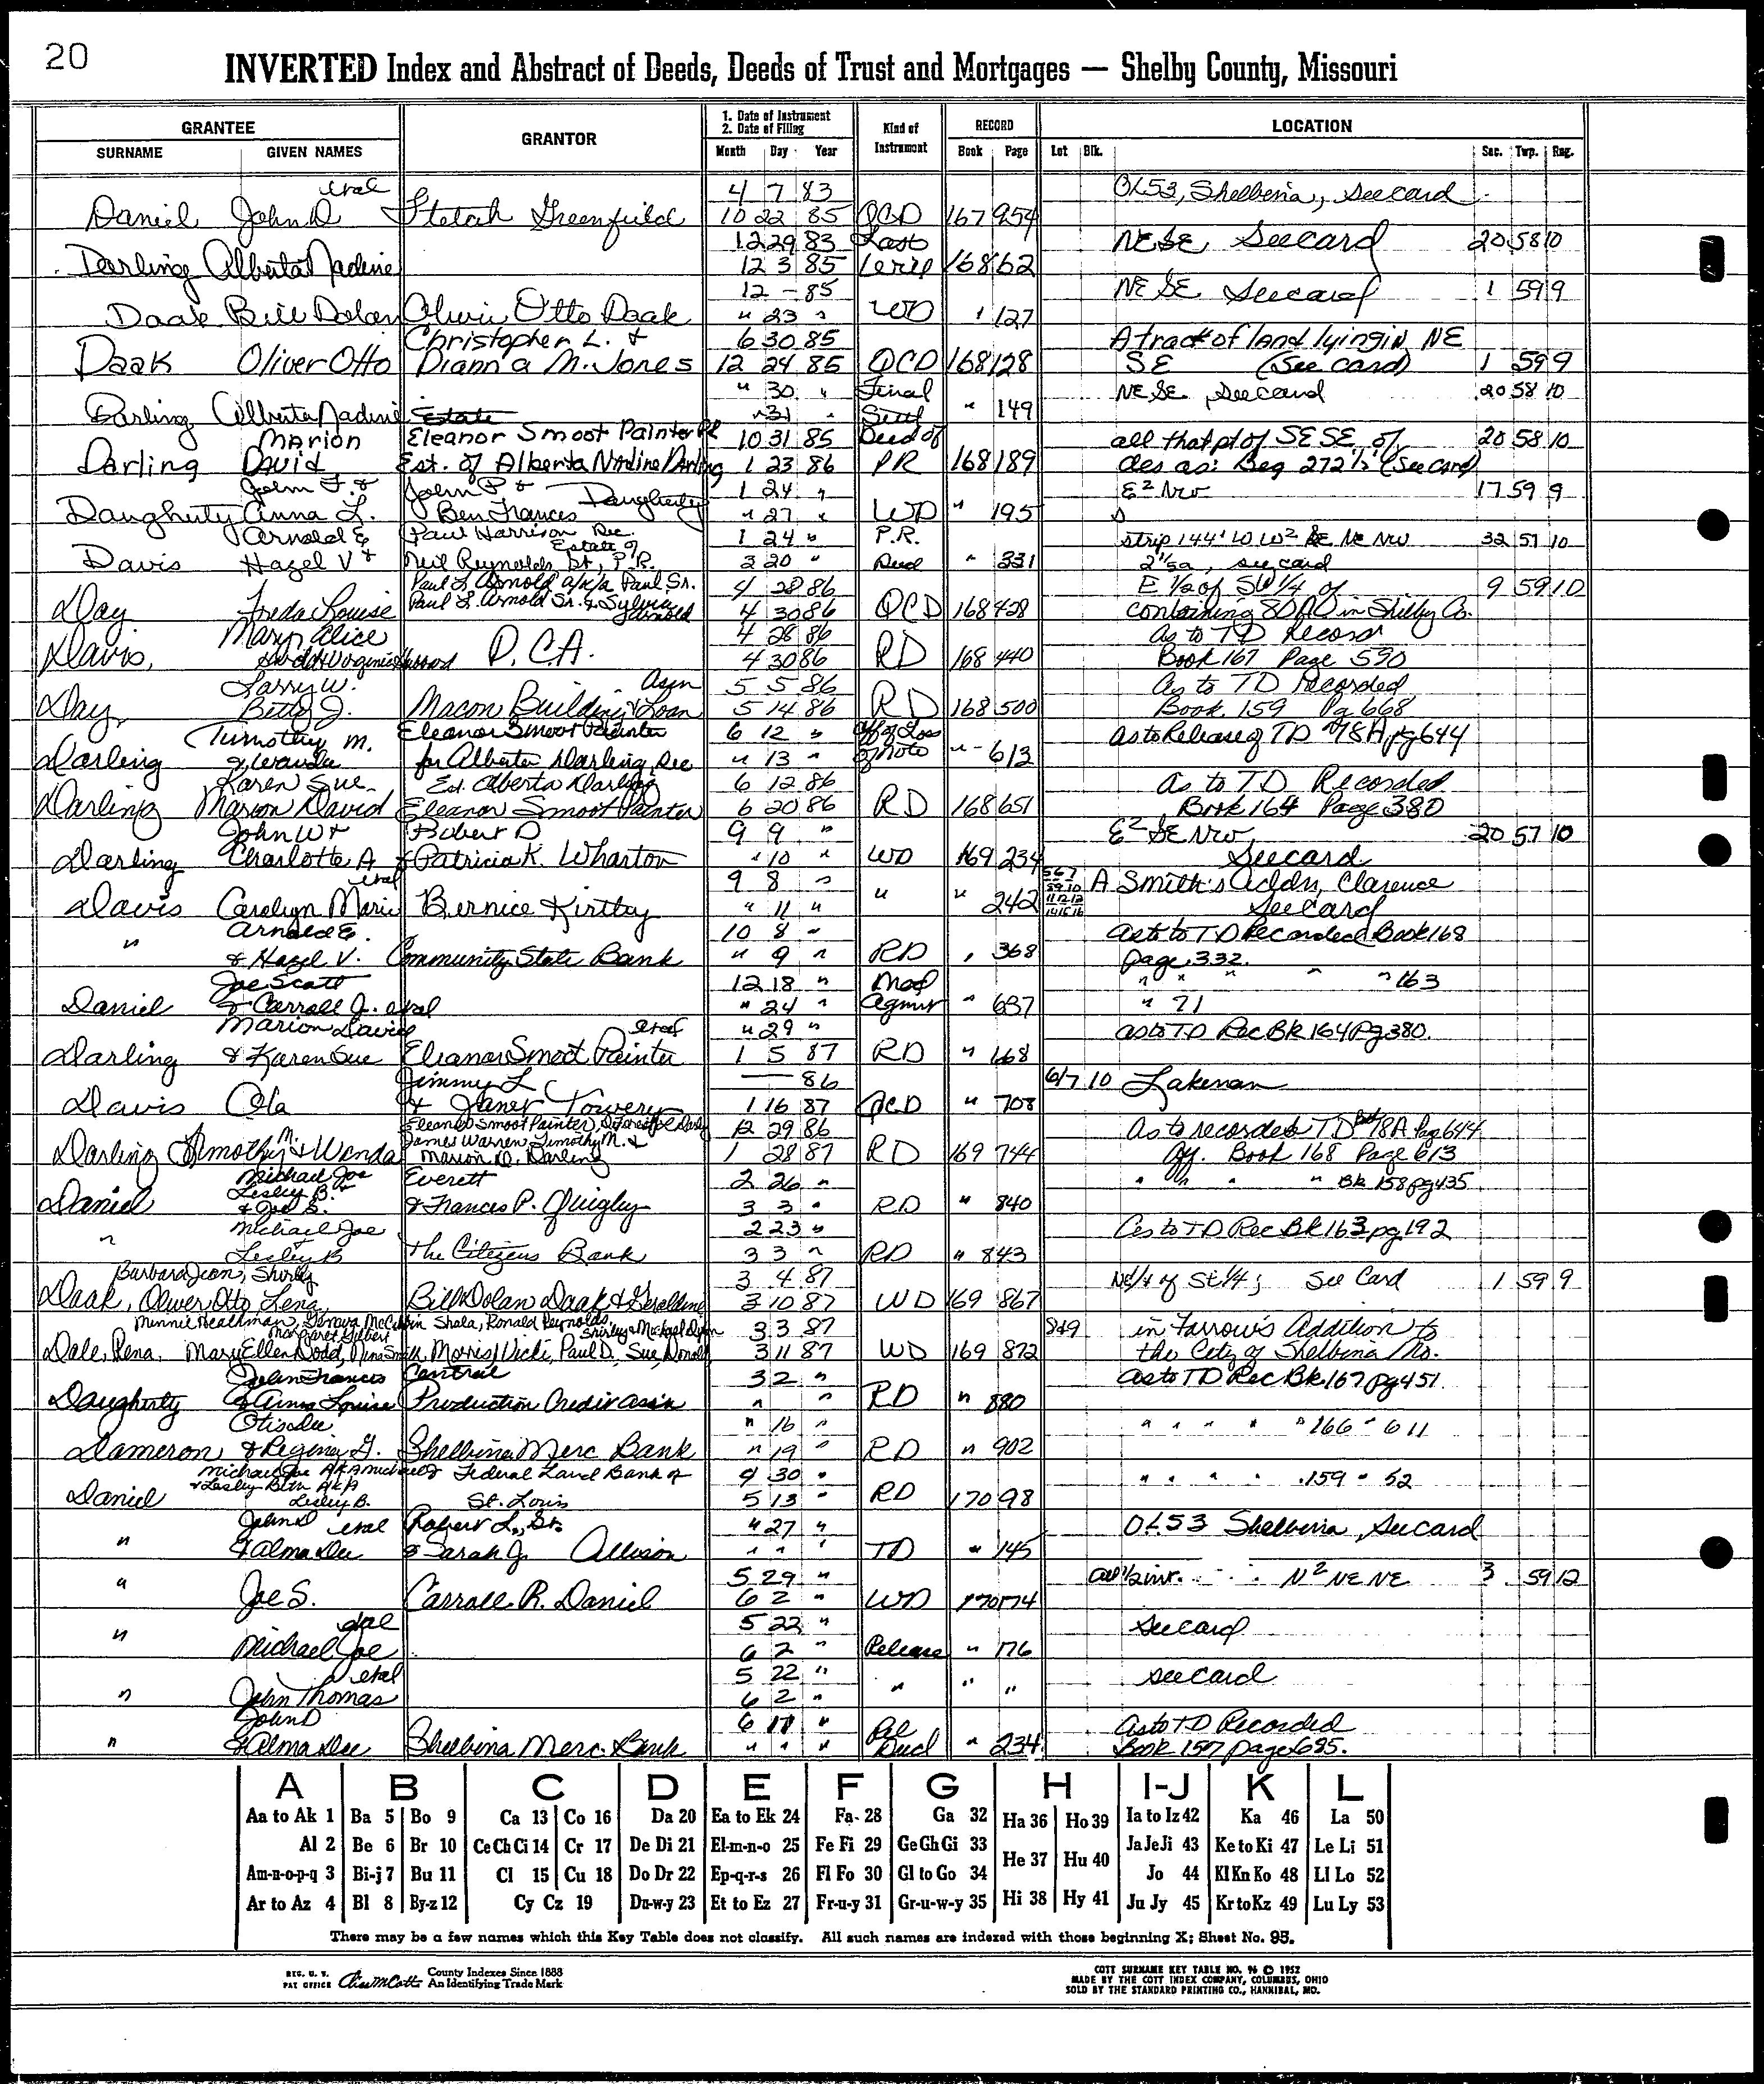 20
INVERTED Index and Abstract of Deeds, Deeds of Trust and Mortgages — Shelby County, Missouri
GRANTEE GRANTOR 1. Date of Instrument 2. Date of Filing Kind of Instrument RECORD LOCATION
SURNAME GIVEN NAMES Month Day Year Book Page Lot Blk. Sec. Twp. Rng.
etal 4 7 83 OL53, Shelbina, see card
Daniel John D Greenfield 10 22 85 QCD 167 954
12 29 83 Last NE SE, See card 20 58 10
Darling Alberta Nadine 12 3 85 168 62
12 - 85 NE SE See card 1 59 9
Daak Bill Dolan Otto Daak " 23 " WD 127
Christopher L. & 6 30 85 A tract of land lying in NE
Daak Oliver Otto Diann a M. Jones 12 24 85 QCD 168 128 SE (See card) 1 59 9
" 30 " Final NE SE, see card 20 58 10
Darling Alberta Nadine Estate " 31 " Settl " 149
Marion Eleanor Smoot Painter PR 10 31 85 Deed of all that pt of SE SE of 20 58 10
Darling David Est. of Alberta Nadine Darling 1 23 86 PR 168 189 des as: Beg 272 1/2' (See card)
John F. & John P & Daugherty 1 24 " E2 NW 17 59 9
Daugherty Anna L. Ben Frances " 27 " WD " 195
Arnold E Paul Harrison Dec. Estate of 1 24 " P.R. strip 144' W W2 SE NE NW 32 57 10
Davis Hazel V & Neil Reynolds, P.R. 3 20 " Deed " 331 2 1/5a, see card
Paul L. Arnold a/k/a Paul Sr. 4 28 86 E 1/2 of SW 1/4 of 9 59 10
Day Freda Louise Paul L. Arnold Sr. & Sylvia Arnold 4 30 86 QCD 168 428 containing 80 AC in Shelby Co.
Mary Alice 4 28 86 As to TD Record
Davis, P.C.A. 4 30 86 RD 168 440 Book 167 Page 590
Larry W. Assn 5 5 86 As to TD Recorded
Day, Betty J. Macon Building & Loan 5 14 86 RD 168 500 Book 159 Pg 668
Timothy M. Eleanor Smoot Painter 6 12 " Aff of Loss As to Release of TD 78A pg 644
Darling & Wanda for Alberta Darling, Dec " 13 " of Note " 613
Karen Sue Est. Alberta Darling 6 12 86 As to T.D. Recorded
Darling Marion David Eleanor Smoot Painter 6 20 86 RD 168 651 Book 164 Page 380
John W & Robert D 9 9 " E2 SE NW 20 57 10
Darling Charlotte A & Patricia K. Wharton " 10 " WD 169 234 See card
etal 9 8 " 567 89 10 A Smith's Addn, Clarence
Davis Carolyn Marie Bernice Kirtley " 11 " " " 242 11 12 13 14 15 16 See card
Arnold E. 10 8 " As to TD Recorded Book 168
" & Hazel V. Community State Bank " 9 " RD " 368 page 332.
Joe Scott 12 18 " Mod " " " " 163
Daniel & Carroll J. etal " 24 " Agmnt " 637 " 71
Marion David etal " 29 " As to TD Rec Bk 164 Pg 380.
Darling & Karen Sue Eleanor Smoot Painter 1 5 87 RD " 668
Jimmy L — 86 6/7 10 Lakenan
Davis Ola & Janet Towery 1 16 87 QCD " 708
Eleanor Smoot Painter, 12 29 86 As to recorded TD 78A Pag 644
Darling Timothy M. & Wanda James Warren, Timothy M. & Marion D. Darling 1 28 87 RD 169 744 Aff. Book 168 Page 613
Michael Joe Everett 2 26 " " " " " Bk 158 pg 435
Daniel Lesley B. & & Joe S. & Frances P. Quigley 3 3 " RD " 840
Michael Joe 2 23 " As to TD Rec Bk 163 pg 192
" Lesley B The Citizens Bank 3 3 " RD " 843
Barbara Jean, Shirley 3 4 87 NE 1/4 of SE 1/4; See Card 1 59 9
Daak, Oliver Otto Lena, Bill Dolan Daak & Geraldine 3 10 87 WD 169 867
Minnie Heathman, Shala, Ronald Reynolds, Margaret Gilbert Shirley & Michael 3 3 87 8&9 in Farrow's Addition to
Dale, Rena. Mary Ellen Dodd, Nina Smith, Morris, Vicki, Paul D., Sue, Donald 3 11 87 WD 169 872 the City of Shelbina Mo.
John Frances Central 3 2 " As to TD Rec Bk 167 pg 451.
Daugherty & Anna Louise Production Credit Ass'n " " RD " 880
Otis Lee " 16 " " " " " " 166 " 611
Dameron & Regina G. Shelbina Merc Bank " 19 " RD " 902
Michael Joe AKA Michael J Federal Land Bank of 4 30 " " " " " 159 " 52
Daniel & Lesley Beth AKA Lesley B. St. Louis 5 13 " RD 170 98
John D etal Robert L., Sr. " 27 " OL53 Shelbina, see card
" & Alma Dee & Sarah J. Allison " " " TD " 145
5 29 " all 1/2 int. N2 NE NE 3 59 12
" Joe S. Carroll R. Daniel 6 2 " WD 170 174
etal 5 22 " See card
" Michael Joe 6 2 " Release " 176
etal 5 22 " see card
" John Thomas 6 2 " " " "
John D 6 17 " Rel As to TD Recorded
" & Alma Dee Shelbina Merc. Bank " " " Deed " 234 Book 157 page 695.
A B C D E F G H I-J K L
Aa to Ak 1 Ba 5 Bo 9 Ca 13 Co 16 Da 20 Ea to Ek 24 Fa 28 Ga 32 Ha 36 Ho 39 Ia to Iz 42 Ka 46 La 50
Al 2 Be 6 Br 10 Ce Ch Ci 14 Cr 17 De Di 21 El-m-n-o 25 Fe Fi 29 Ge Gh Gi 33 He 37 Hu 40 Ja Je Ji 43 Ke to Ki 47 Le Li 51
Am-n-o-p-q 3 Bi-j 7 Bu 11 Cl 15 Cu 18 Do Dr 22 Ep-q-r-s 26 Fl Fo 30 Gl to Go 34 Hi 38 Hy 41 Jo 44 Kl Kn Ko 48 Ll Lo 52
Ar to Az 4 Bl 8 By-z 12 Cy Cz 19 Du-w-y 23 Et to Ez 27 Fr-u-y 31 Gr-u-w-y 35 Ju Jy 45 Kr to Kz 49 Lu Ly 53
There may be a few names which this Key Table does not classify. All such names are indexed with those beginning X; Sheet No. 95.
REG. U. S. PAT OFFICE County Indexes Since 1888 An Identifying Trade Mark
COTT SURNAME KEY TABLE NO. 96 © 1952
MADE BY THE COTT INDEX COMPANY, COLUMBUS, OHIO
SOLD BY THE STANDARD PRINTING CO., HANNIBAL, MO.